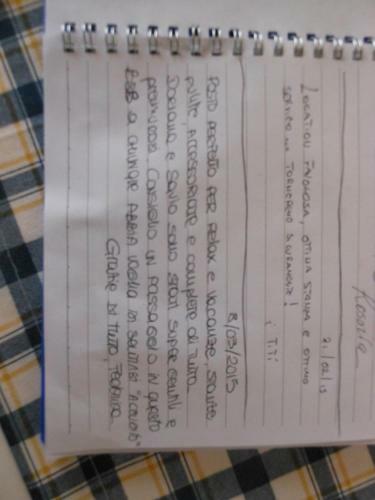 Rosalia
21/02/15
LOCATION FAVOLOSA, OTTIMA STANZA E OTTIMO
SERVIZIO NOI TORNEREMO SICURAMENTE!
i T.T.
8/03/2015
POSTO PERFETTO PER RELAX E VACANZE, STANZE
PULITE, ACCESSORIATE E COMPLETE DI TUTTO.
DORIANA E SAVIO SONO STATI SUPER GENTILI E
PREMUROSI. CONSIGLIO UN PASSAGGIO IN QUESTO
B&B A CHIUNQUE ABBIA VOGLIA DI SENTIRSI "ACCOLTO"
GRAZIE DI TUTTO,